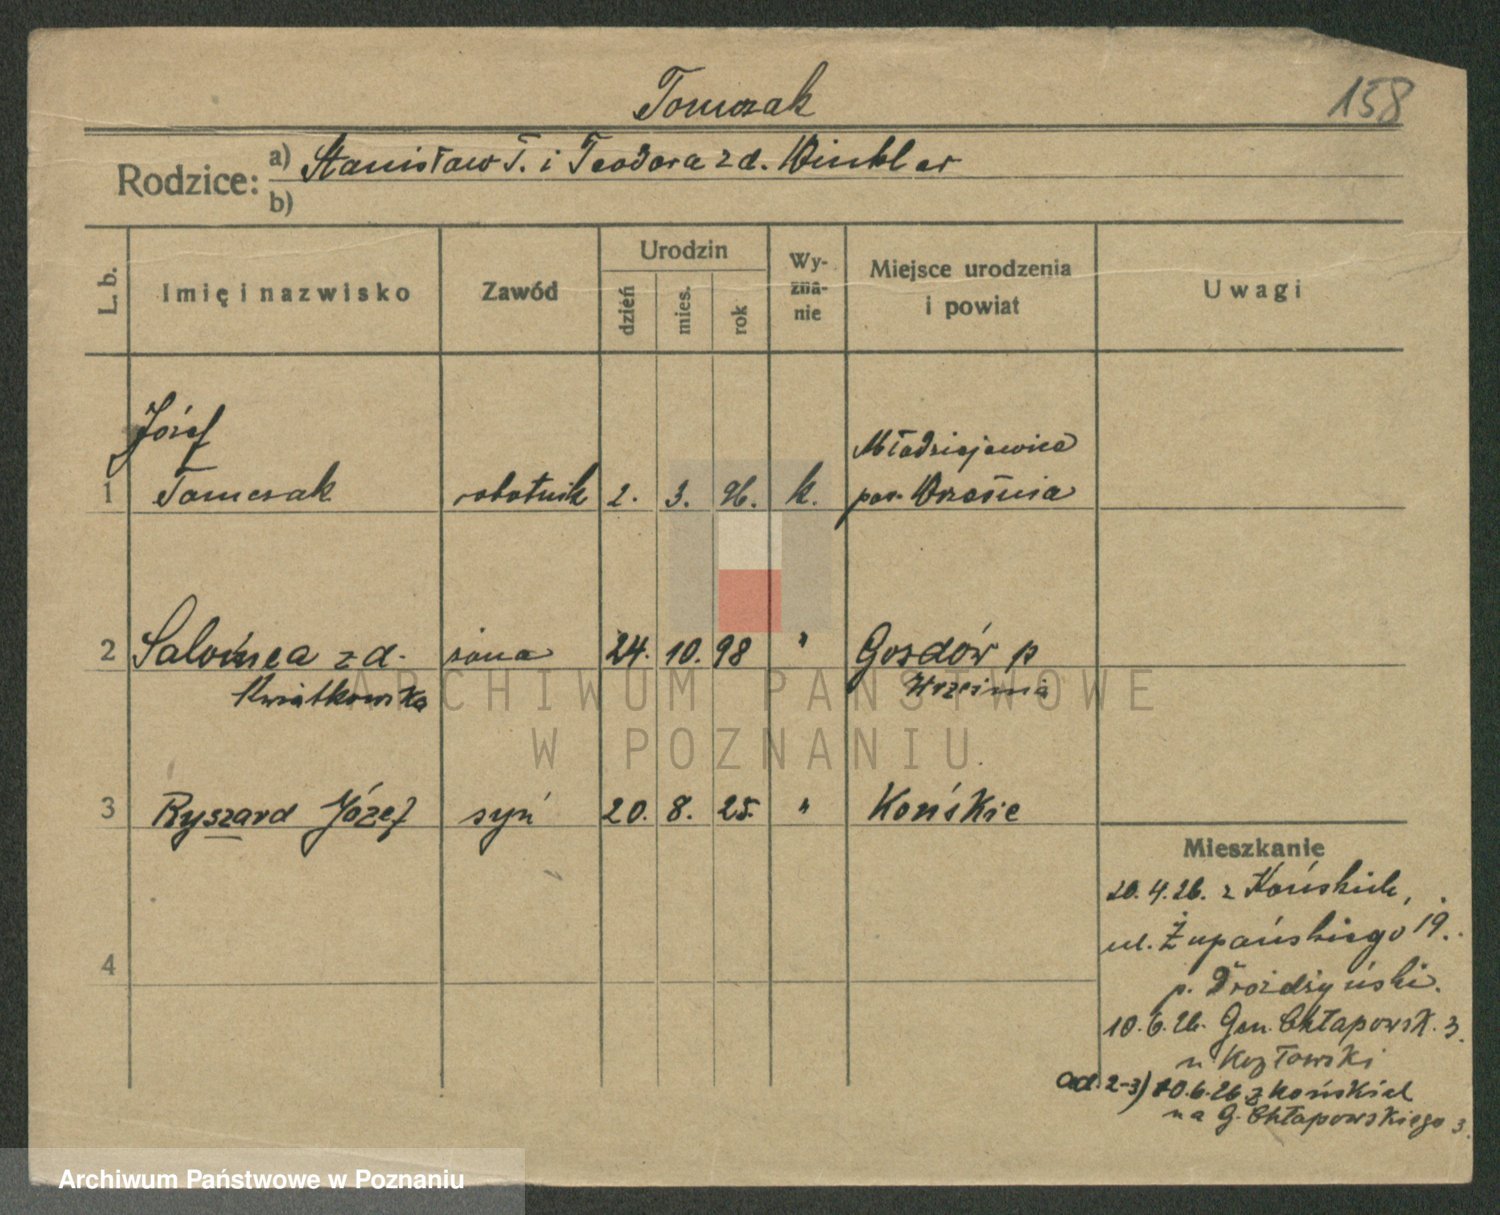 158
Tomczak
Rodzice:
a) Stanisław T. i Teodora z d. Winkler
b)
L. b.
Imię i nazwisko
Zawód
Urodzin
dzień
mies.
rok
Wy-
zna-
nie
Miejsce urodzenia
i powiat
Uwagi
Józef
Młodziejewice
1 Tomczak robotnik 2. 3. 96. k. pow. Września
2 Salomea z d. żona 24. 10. 98 " Gozdów p
Kwiatkowska Września
3 Ryszard Józef syn 20. 8. 25. " Końskie
4
Mieszkanie
20.4.26. z Końskich,
ul. Żupańskiego 19.
p. Drożdżyński.
10.6.26. Gen. Chłapowsk. 3.
u Kozłowski
ad. 2-3) 10.6.26 z Końskich
na G. Chłapowskiego 3.
ARCHIWUM PAŃSTWOWE
W POZNANIU
Archiwum Państwowe w Poznaniu